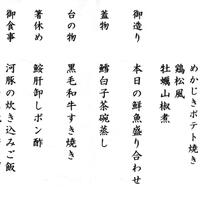 めかじきポテト焼き
鶏松風
牡蠣山椒煮
御造り
本日の鮮魚盛り合わせ
蓋物
鱈白子茶碗蒸し
台の物
黒毛和牛すき焼き
箸休め
鮟肝卸しポン酢
御食事
河豚の炊き込みご飯